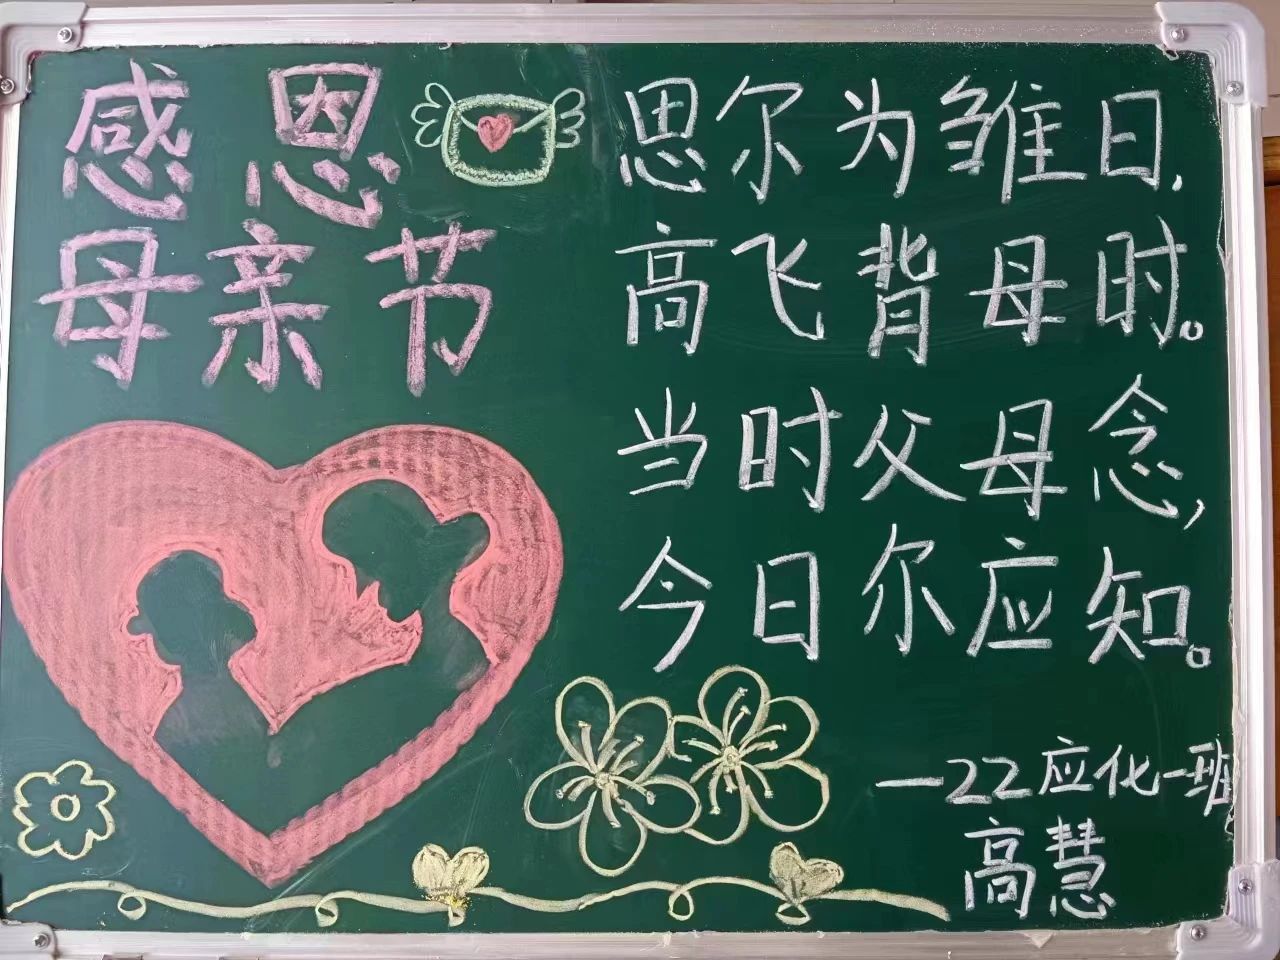 感恩
母亲节
思尔为雏日,
高飞背母时。
当时父母念,
今日尔应知。
—22应化一班
高慧